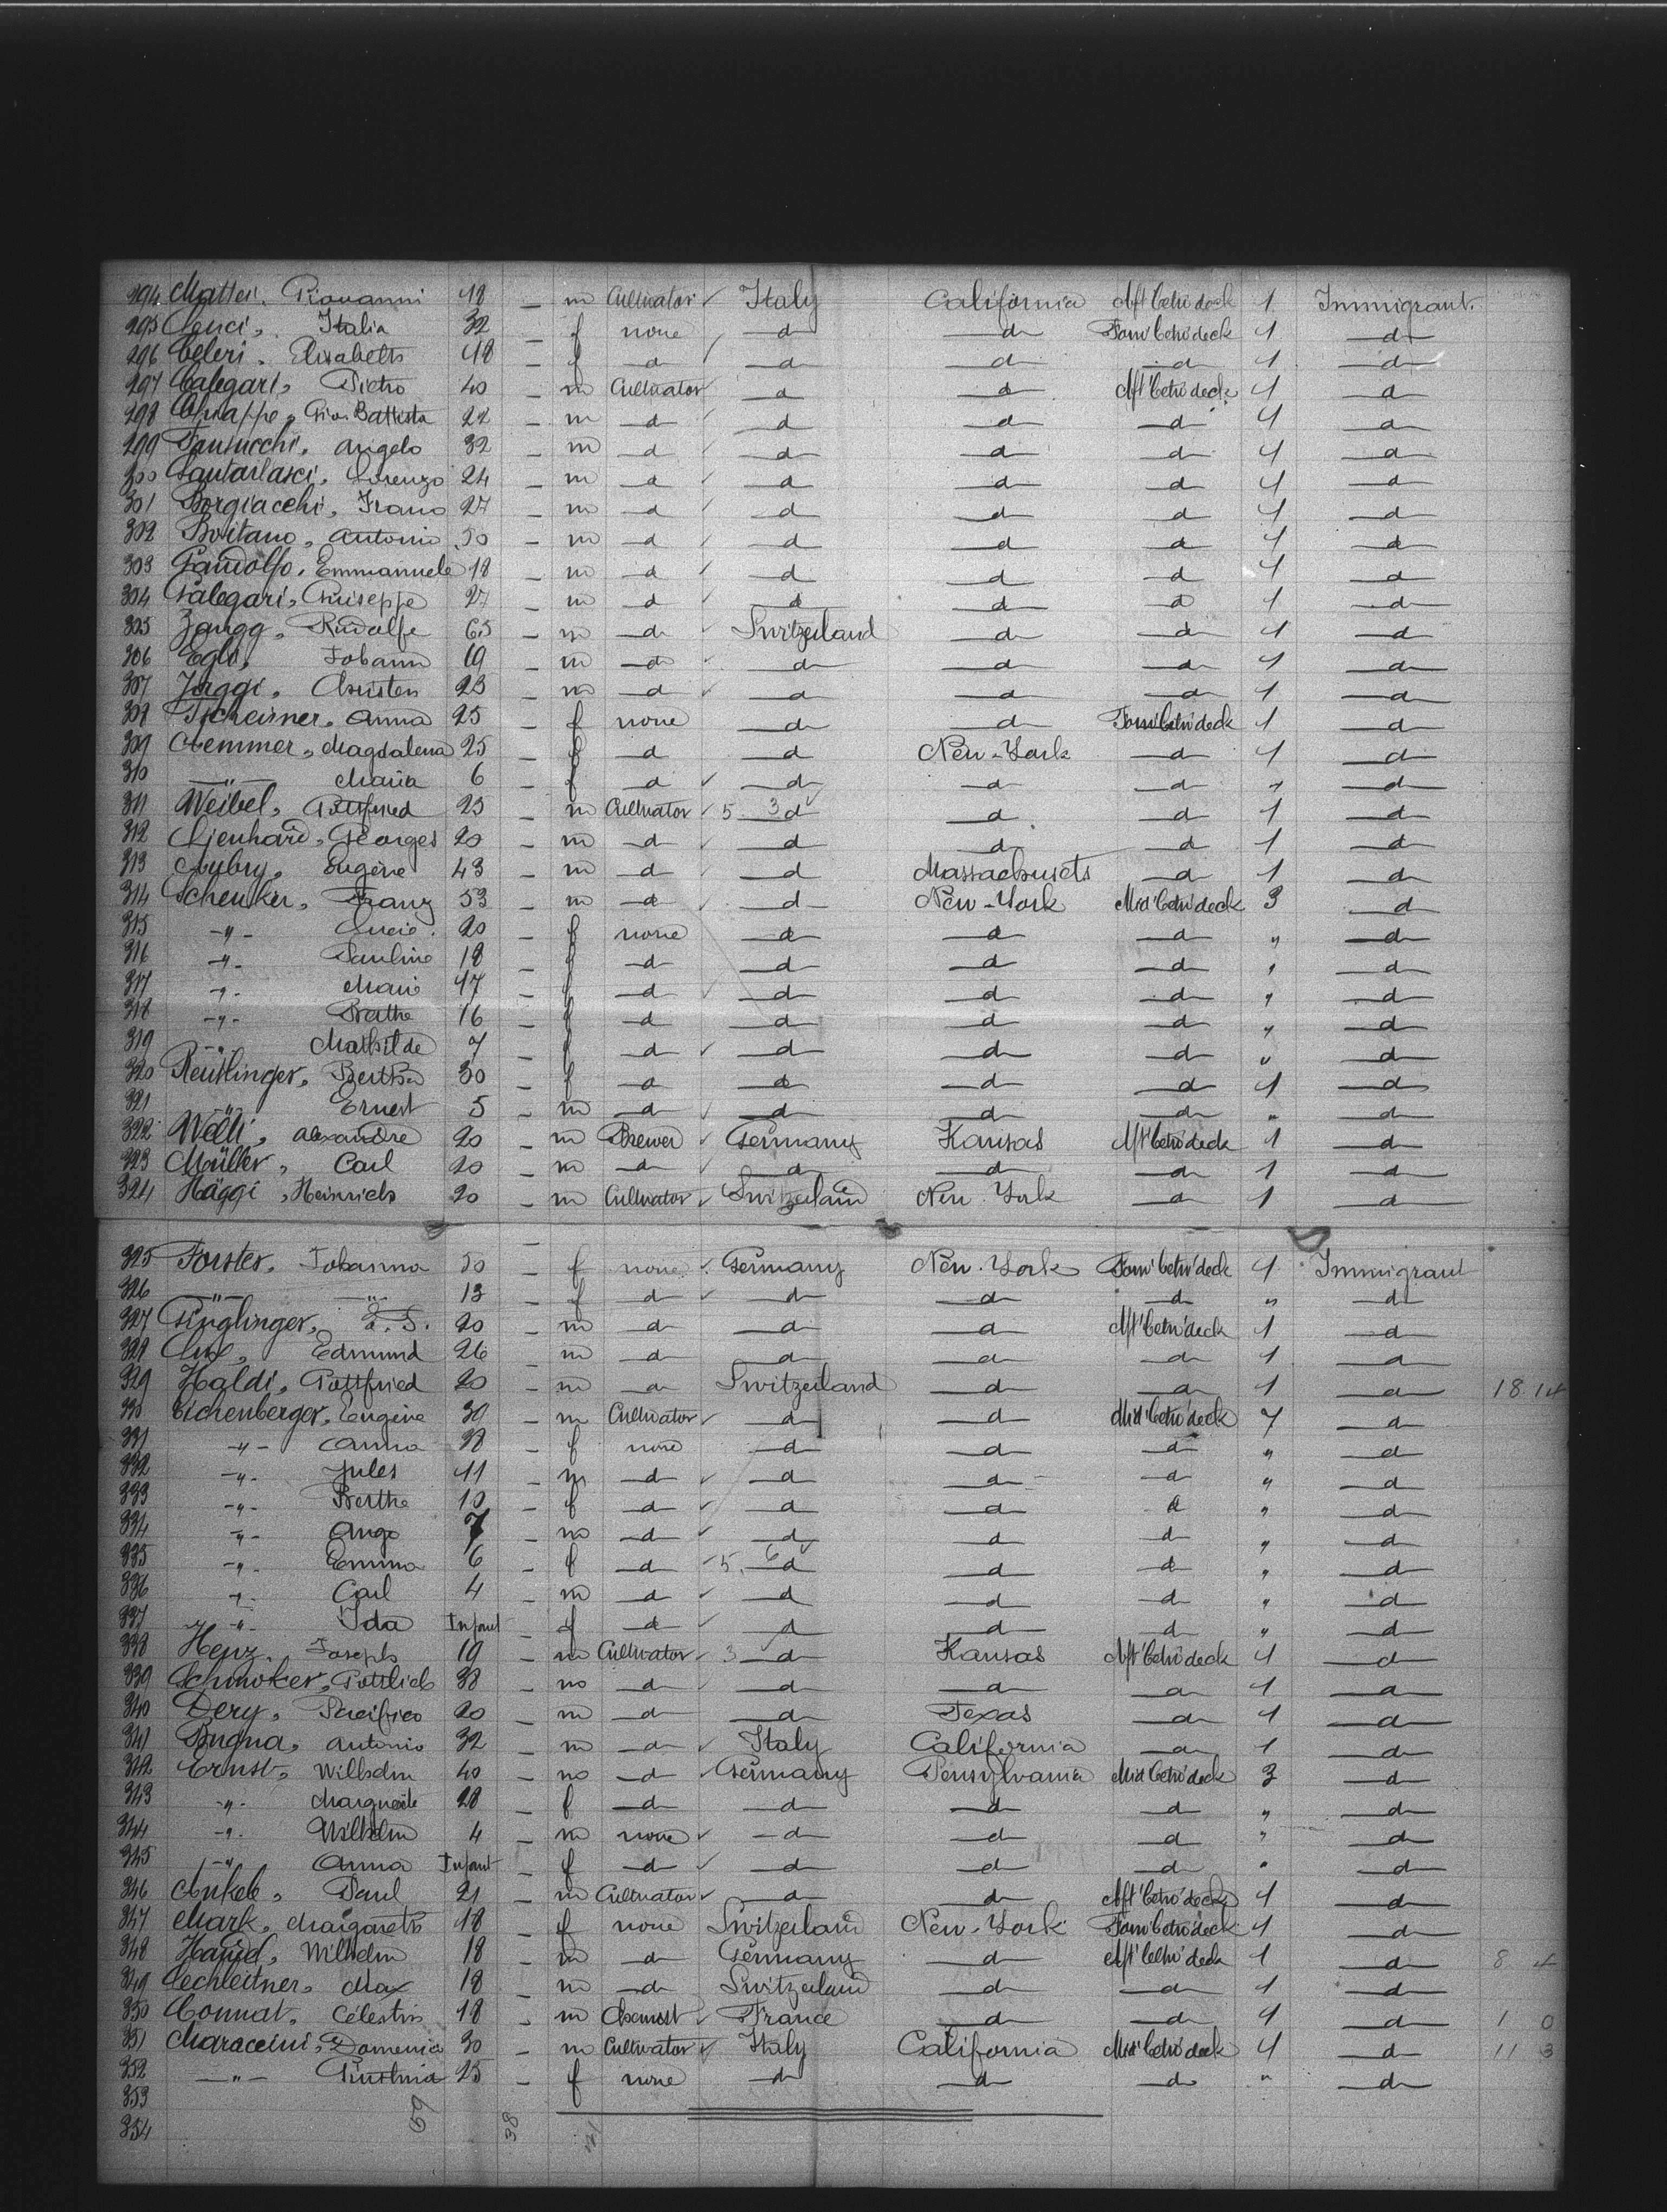 294 Mattei, Giovanni 48 – m Cultivator Italy California Aft betw deck 1 Immigrant.
295 Cenci, Italia 32 – f none d d Forw betw deck 1 d
296 Celeri, Elisabeth 48 – f d d d d 1 d
297 Calegari, Pietro 40 – m Cultivator d d Aft betw deck 1 d
298 Chiappe, Giov Battista 22 – m d d d d 1 d
299 Fanucchi, Angelo 32 – m d d d d 1 d
300 Lorenzo 24 – m d d d d 1 d
301 Borgiacchi, 27 – m d d d d 1 d
302 Boitano, Antonio 50 – m d d d d 1 d
303 Gandolfo, Emmanuele 18 – m d d d d 1 d
304 Calegari, Giuseppe 27 – m d d d d 1 d
305 Zaugg, Rudolfe 65 – m d Switzerland d d 1 d
306 Egli, Johann 19 – m d d d d 1 d
307 Jaggi, Christen 23 – m d d d d 1 d
308 Anna 25 – f none d d Forw betw deck 1 d
309 Aemmer, Magdalena 25 – f d d New-York d 1 d
310 –"– Maria 6 f d d d d " d
311 Weibel, Gottfried 23 – m Cultivator 5 3 d d d 1 d
312 Lienhard, Georges 20 – m d d d d 1 d
313 Aubry, Eugène 43 – m d d Massachusets d 1 d
314 Schenker, Franz 53 – m d d New-York Mid betw deck 3 d
315 –"– Lucie 20 – f none d d d " d
316 –"– Pauline 18 – f d d d d " d
317 –"– Marie 17 – f d d d d " d
318 –"– 16 – f d d d d " d
319 –"– Mathilde 7 – f d d d d " d
320 Reutlinger, Bertha 30 – f d d d d 1 d
321 –"– Ernest 5 – m d d d d " d
322 Welti, Alexandre 20 – m Brewer Germany Kansas Aft betw deck 1 d
323 Müller, Carl 20 – m d d d d 1 d
324 Häggi, Heinrich 20 – m Cultivator Switzerland New-York d 1 d
325 Forster, Johanna 50 – f none Germany New-York Forw betw deck 1 Immigrant
326 –"– –"– 13 – f d d d d " d
327 20 – m d d d Aft betw deck 1 d
328 Edmund 26 – m d d d d 1 d
329 Haldi, Gottfried 20 – m d Switzerland d d 1 d 18 14
330 Eichenberger, Eugène 39 – m Cultivator d d Mid betw deck 7 d
331 –"– Anna 38 – f none d d d " d
332 –"– Jules 11 – m d d d d " d
333 –"– Berthe 10 – f d d d d " d
334 –"– 7 – m d d d d " d
335 –"– Emma 6 – f d 5. 6 d d d " d
336 –"– Carl 4 – m d d d d " d
337 –"– Ida Infant – f d d d d " d
338 Henz, Joseph 19 – m Cultivator 3 d Kansas Aft betw deck 1 d
339 Schmoker, Gottlieb 38 – m d d d d 1 d
340 Dery, Pacifico 20 – m d d Texas d 1 d
341 Bugna, Antonio 32 – m d Italy California d 1 d
342 Ernst, Wilhelm 40 – m d Germany Pensylvania Mid betw deck 3 d
343 –"– Marguerite 28 – f d d d d " d
344 –"– Wilhelm 4 – m none d d d " d
345 –"– Anna Infant – f d d d d " d
346 Ankele, Paul 21 – m Cultivator d d Aft betw deck 1 d
347 Mark, Margareth 18 – f none Switzerland New-York Forw betw deck 1 d
348 Wilhelm 18 – m d Germany d Aft betw deck 1 d 8 4
349 Lechleitner, Max 18 – m d Switzerland d d 1 d
350 Connat, Célestin 18 – m Chemist France d d 1 d 1 0
351 Maraccini, Domenico 30 – m Cultivator Italy California Mid betw deck 1 d 11 3
352 –"– 25 – f none d d d " d
353
354
59 38 21